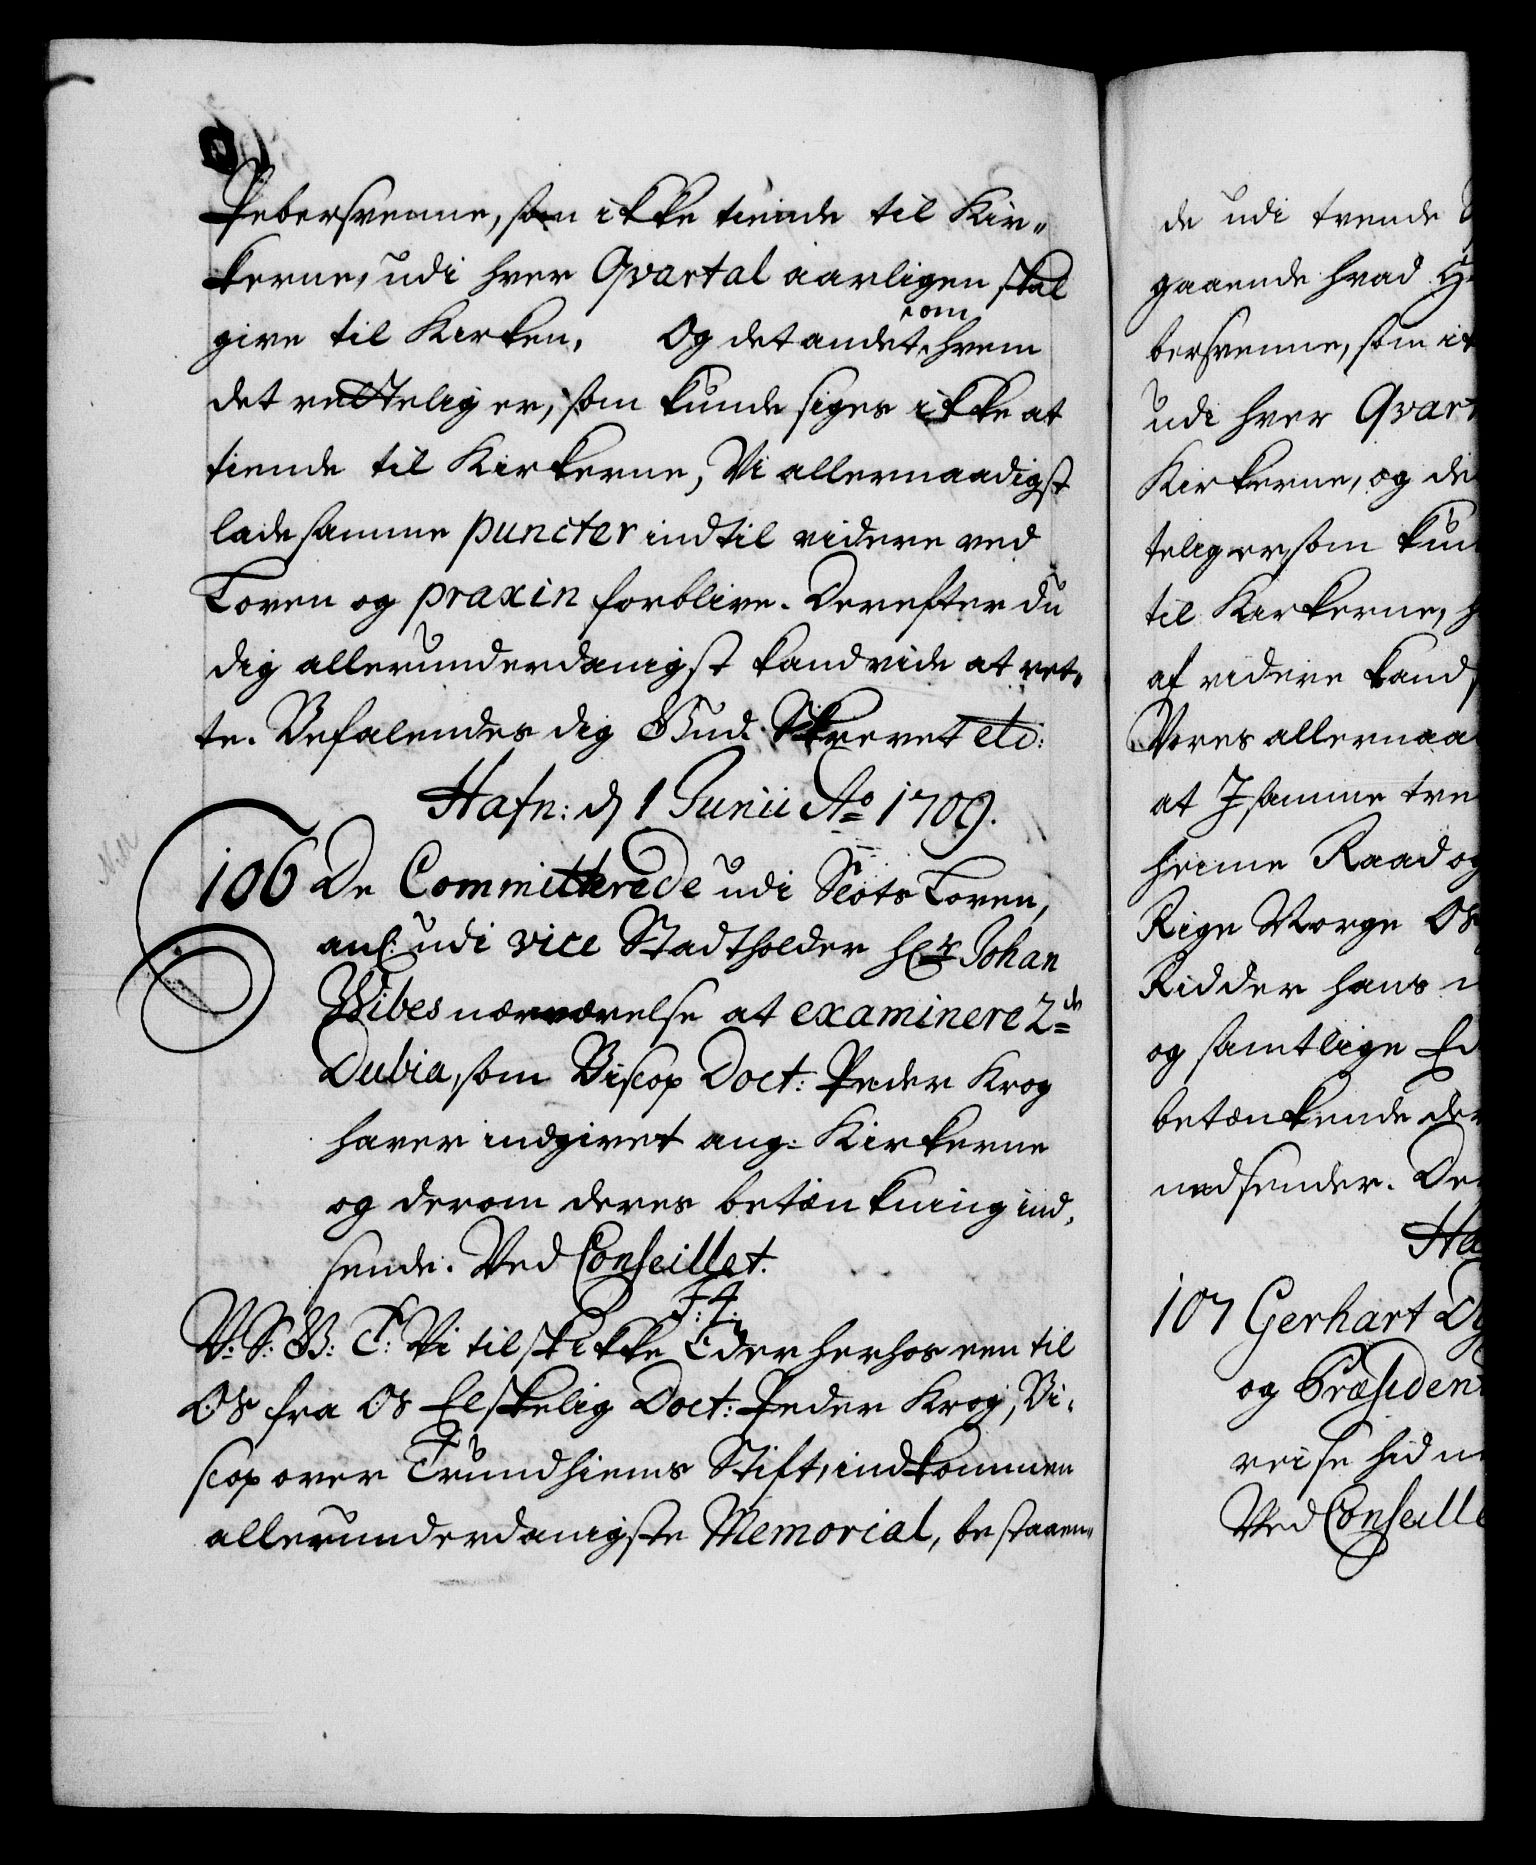 Pebersvenne, som ikke tiende til Kir-
kerne, udi hver Qvartal aarligen skal
give til Kirken, Og det andet, om hvem
det rettelig er, som kunde siges ikke at
tiende til Kirkerne, Vi allernaadigst
lade samme puncter indtil videre ved
Loven og praxin forblive. Derefter du
dig allerunderdanigst kand vide at ret-
te. Befalendes dig Gud. Skrevet etc:
Hafn: d 1 Junii Ao 1709.
106 De Committerede udi Slots Loven,
anl: udi vice Stadtholder Hr Johan
Wibes nærværelse at examinere 2de
Dubia, som Biscop Doct: Peder Krog
haver indgivet ang: Kirkerne
og derom deres betænkning ind-
sende. Ved Conseillet.
F: 4.
V: S: G: T: Vi tilskikke Eder herhos een til
Os fra Os Elskelig Doct: Peder Krog, Bi-
scop over Trundhiems Stift, indkommen
allerunderdanigste Memorial, bestaaen-
de udi trende
gaaende hvad
bersvenne, som
udi hver Qvart
Kirkerne, og
telig er, som
til Kirkerne,
af videre kand
Vores allernaa
at I samme
heime Raad og
Rige Norge
Ridder hans
og samtlige
betænkende
nedsender.
Ha
107 Gerhart
og Præsiden
reise hid
Ved Conseille